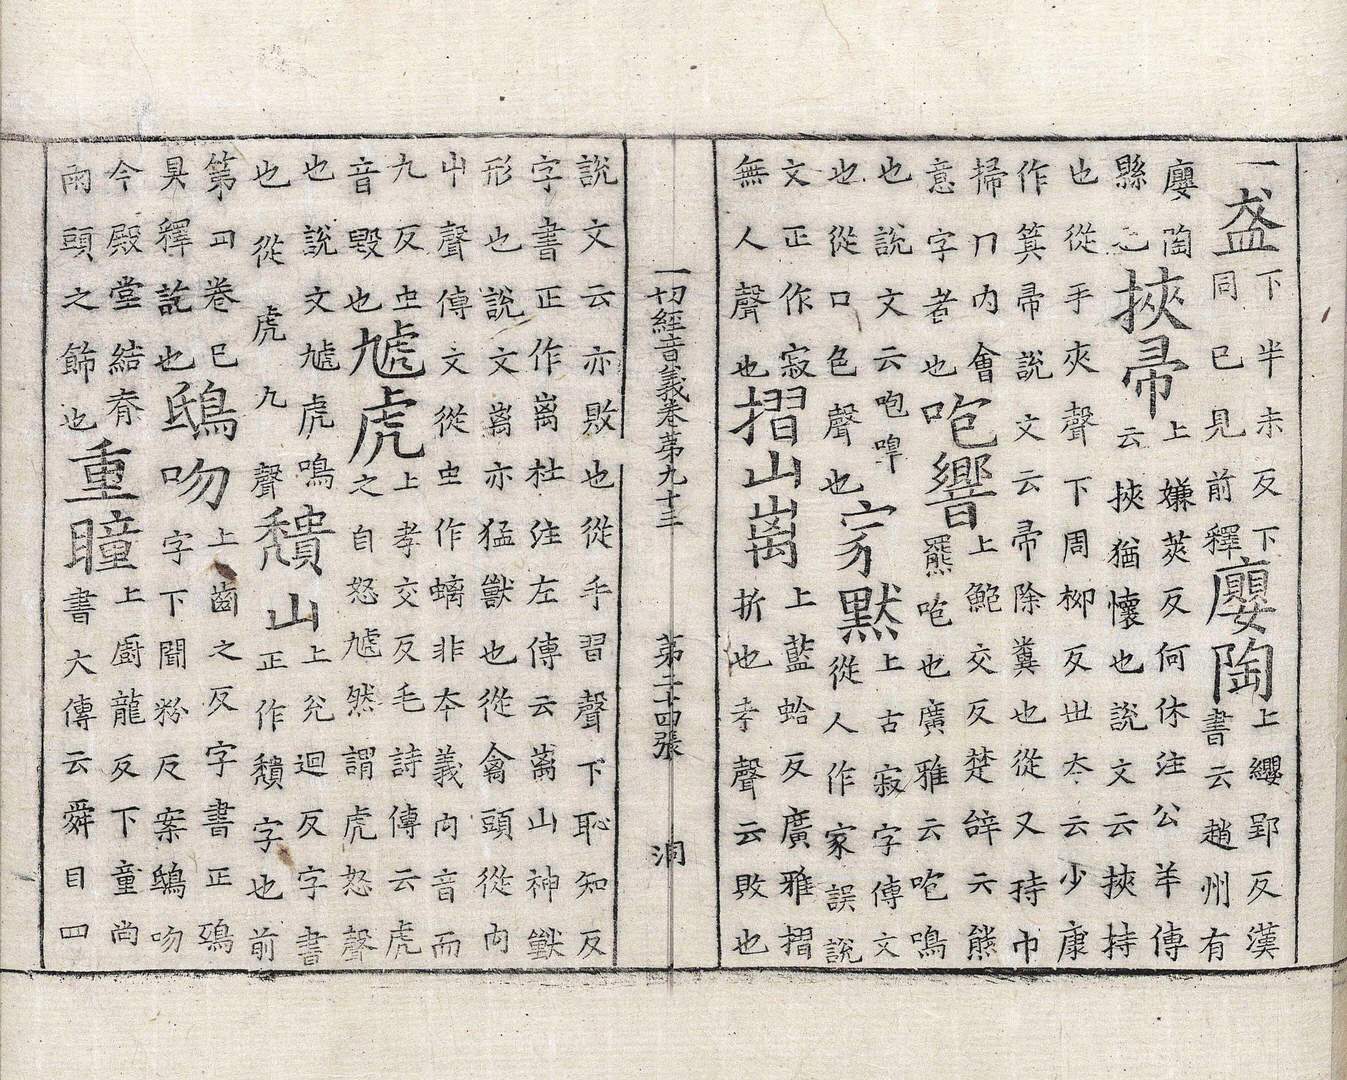 一盔下半未反下同已見前釋廮陶上纓郢反漢書云趙州有
廮陶縣也挾帚上嫌莢反何休注公羊傳云挾猶懷也說文云挾持
也從手夾聲下周柳反世本云少康作箕帚說文云帚除糞也從又持巾
掃冂内會意字者也咆響上鮑交反楚辝云熊羆咆也廣雅云咆鳴
也說文云咆嘷也從口包聲也㝱默上古寂字傳文從人作家誤說
文正作寂無人聲也摺山离上藍蛤反廣雅摺折也孝聲云敗也
一切經音義卷第九十三 第二十四張 洞
說文云亦敗也從手習聲下恥知反字書正作离杜注左傳云离山神獸
形也說文离亦猛獸也從禽頭從内屮聲傳文從虫作螭非本義内音而
九反虫音毀也虓虎上孝交反毛詩傳云虎之自怒虓然謂虎怒聲
也說文虓虎鳴也從虎九聲穨山上兊迴反字書正作穨字也前
第四卷已具釋訖也鴟吻上齒之反字書正鴟字下聞粉反案鴟吻
今殿堂結脊兩頭之飾也重瞳上廚龍反下童尚書大傳云舜目四